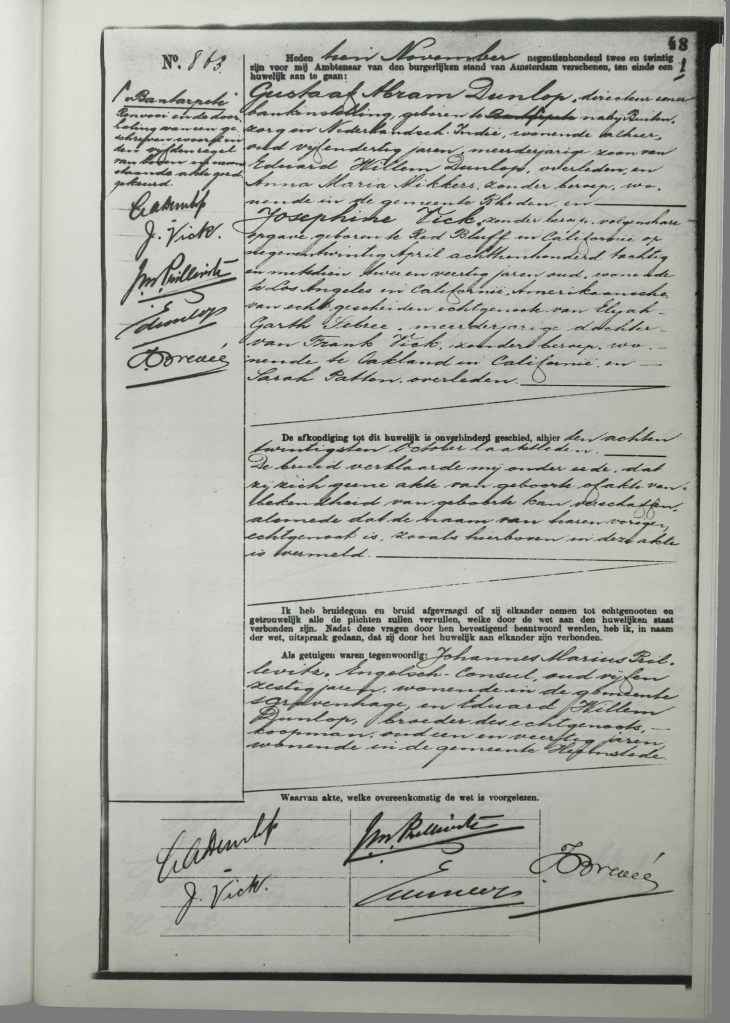 48
1
No. 863.
Heden tien November negentienhonderd twee en twintig
zijn voor mij Ambtenaar van den burgerlijken stand van Amsterdam verschenen, ten einde een
huwelijk aan te gaan:
Gustaaf Abram Dunlop, directeur eener
bankinstelling, geboren te nabij Buiten-
zorg in Nederlandsch Indië, wonende alhier,
oud vijfendertig jaren, meerderjarige zoon van
Eduard Willem Dunlop, overleden, en
Anna Maria Mikkers, zonder beroep, wo-
nende in de gemeente Rheden, en
Josephine Vick, zonder beroep, volgens hare
opgave geboren te Red Bluff in Californië op
negenentwintig April achttienhonderd tachtig
en mitsdien twee en veertig jaren oud, wonende
te Los Angeles in Californië, Amerikaansche,
van echt gescheiden echtgenoote van Elijah
Garth Sebree, meerderjarige dochter
van Frank Vick, zonder beroep, wo-
nende te Oakland in Californië, en
Sarah Patton, overleden.
1 v Bantarpeté
Renvooi en de door-
haling van een ge-
schreven woord in
den vijfden regel
van boven in neven-
staande akte goed-
gekeurd.
GADunlop
J. Vick.
JM Prillevitz
E Dunlop
De afkondiging tot dit huwelijk is onverhinderd geschied, alhier den achten
twintigsten October laatstleden.
De bruid verklaarde mij onder eede, dat
zij zich geene akte van geboorte of akte van
bekendheid van geboorte kan verschaffen,
alsmede dat de naam van haren vorigen
echtgenoot is, zooals hierboven in deze akte
is vermeld.
Ik heb bruidegom en bruid afgevraagd of zij elkander nemen tot echtgenooten en
getrouwelijk alle de plichten zullen vervullen, welke door de wet aan den huwelijken staat
verbonden zijn. Nadat deze vragen door hen bevestigend beantwoord werden, heb ik, in naam
der wet, uitspraak gedaan, dat zij door het huwelijk aan elkander zijn verbonden.
Als getuigen waren tegenwoordig: Johannes Marius Pril-
levitz, Engelsch-Consul, oud vijf en
zestig jaren, wonende in de gemeente
's Gravenhage, en Eduard Willem
Dunlop, broeder des echtgenoots,
koopman, oud een en veertig jaren,
wonende in de gemeente Heemstede.
Waarvan akte, welke overeenkomstig de wet is voorgelezen.
GADunlop
J. Vick.
JM Prillevitz
E Dunlop